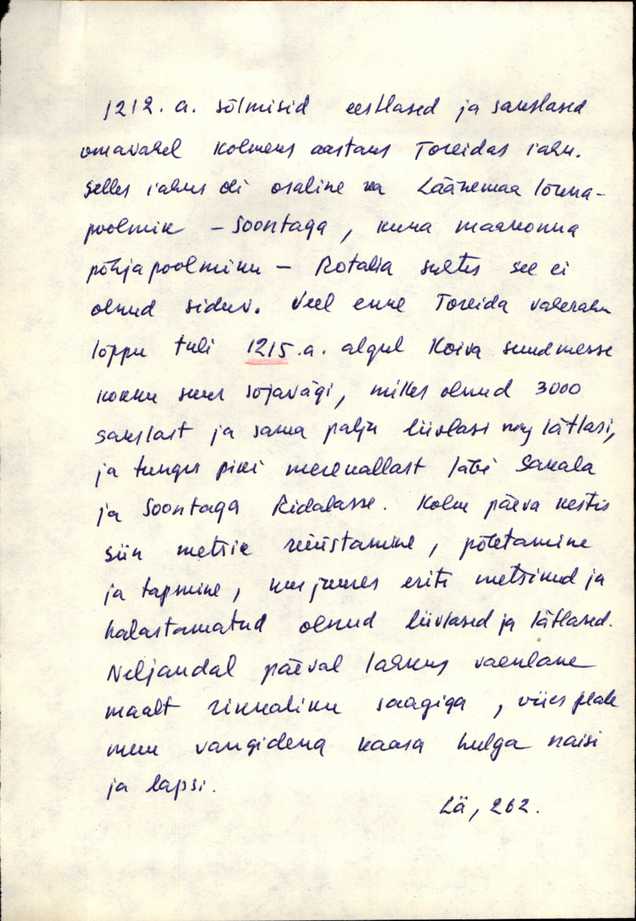 1212. a. sõlmisid eestlased ja sakslased
omavahel kolmeks aastaks Toreidas rahu.
Selles rahus oli osaline ka Läänemaa lõuna-
poolmik – Soontaga, kuna maakonna
põhjapoolmiku – Rotalia suhtes see ei
olnud siduv. Veel enne Toreida vaherahu
lõppu tuli 1215.a. algul Koiva suudmesse
kokku suur sõjavägi, milles olnud 3000
sakslast ja sama palju liivlasi ning lätlasi,
ja tungis piki mereäärt läbi Sakala
ja Soontaga Ridalasse. Kolm päeva kestis
siin metsik rüüstamine, põletamine
ja tapmine, kusjuures eriti metsikud ja
halastamatud olnud liivlased ja lätlased.
Neljandal päeval lahkus vaenlane
maalt rikkaliku saagiga, viies peale
muu vangidena kaasa hulga naisi
ja lapsi.
Lä, 262.